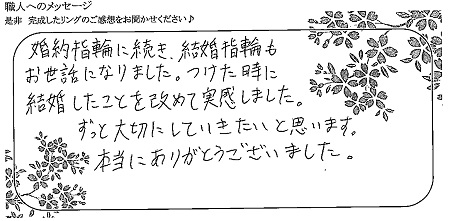 職人へのメッセージ
是非 完成したリングのご感想をお聞かせください♪
婚約指輪に続き、結婚指輪も
お世話になりました。つけた時に
結婚したことを改めて実感しました。
ずっと大切にしていきたいと思います。
本当にありがとうございました。